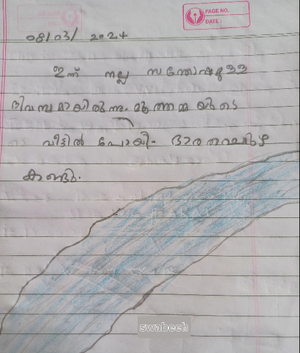 PAGE NO.
DATE:
08/03/2024
ഇന്ന് നല്ല സന്തോഷമുള്ള
ദിവസമായിരുന്നു. മുത്തമ്മയുടെ
വീട്ടിൽ പോയി.
കണ്ടു.
swabeeh